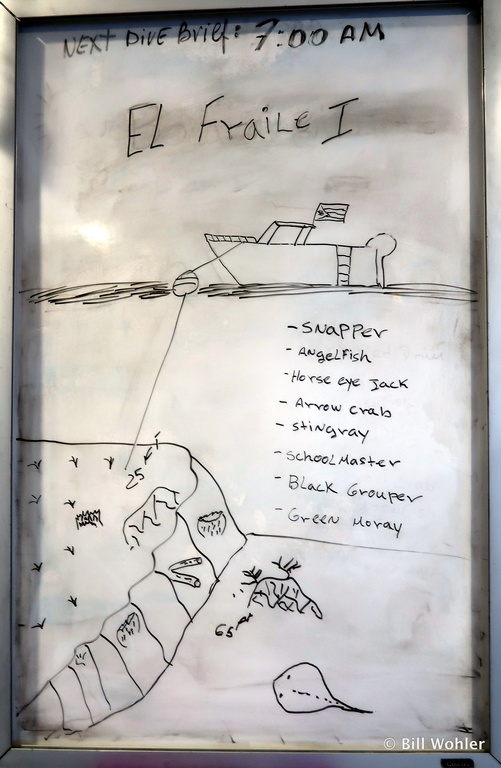 NEXT DIVE Brief: 7:00 AM
EL FraiLe I
- SNAPPER
- ANgelFish
- Horse eye Jack
- Arrow crab
- stingray
- SCHOOLMASTER
- BLACK Grouper
- Green Moray
25'
65'
© Bill Wohler